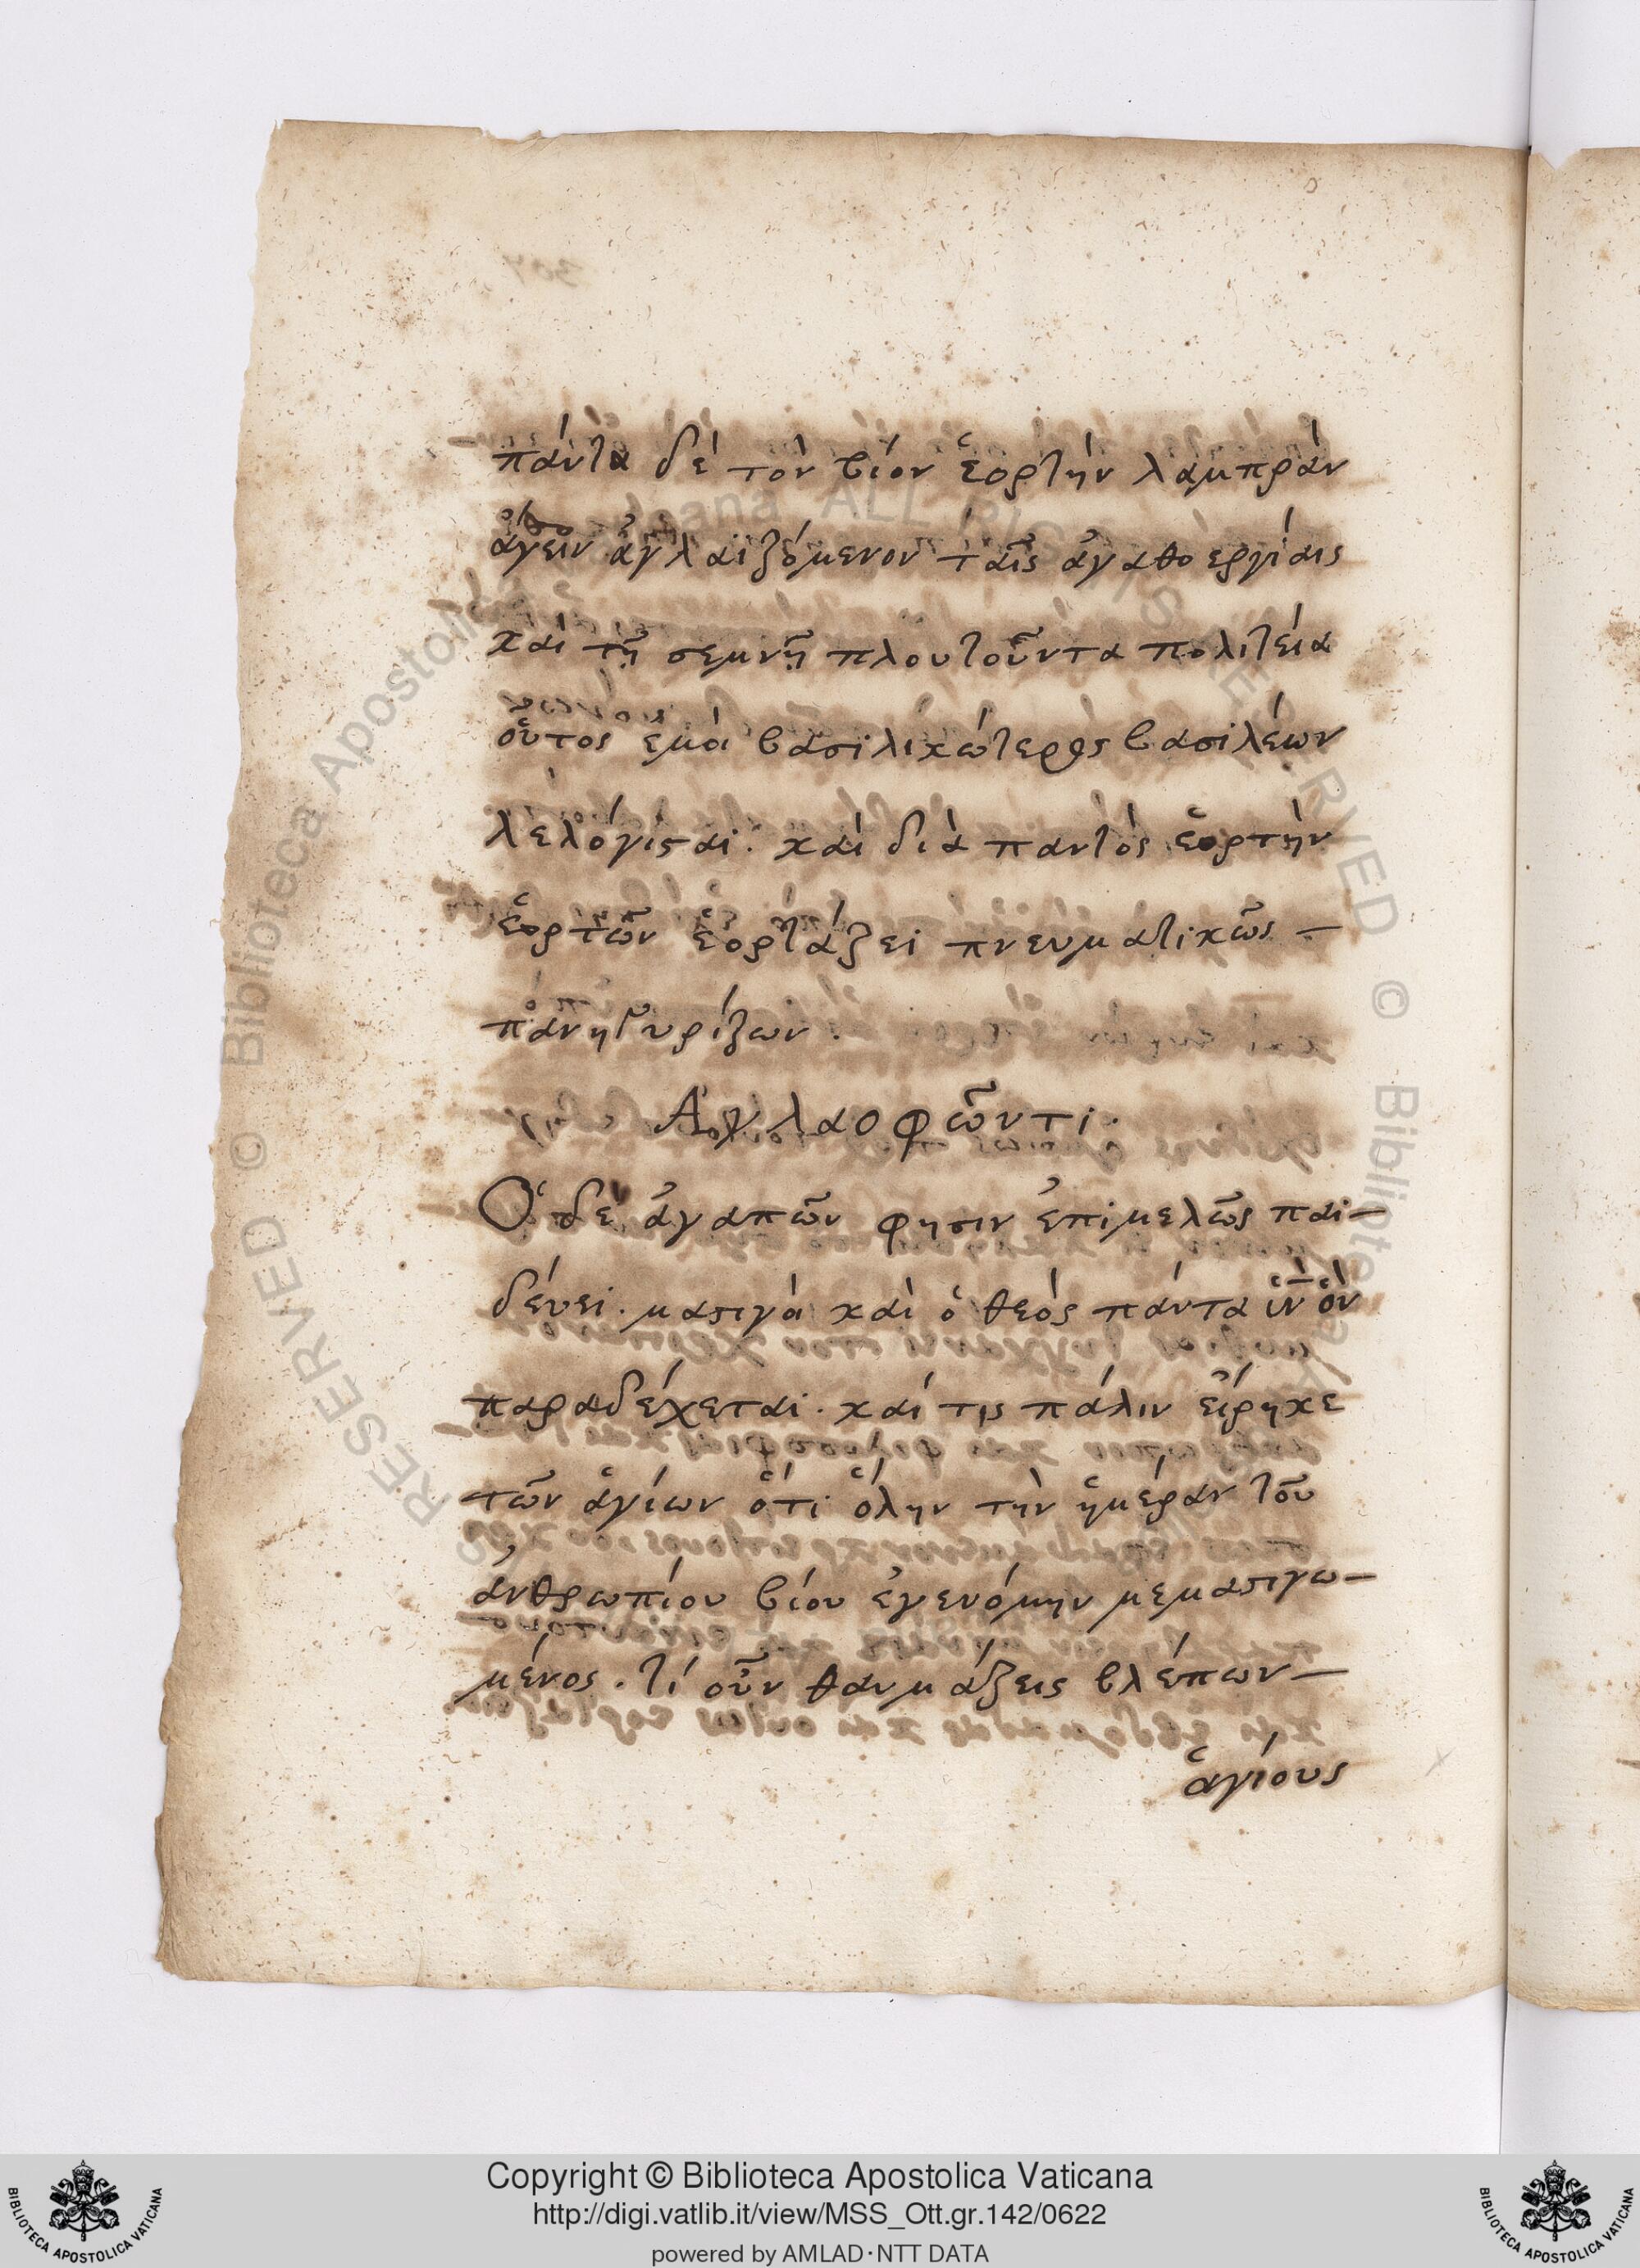 πάντα δὲ τὸν βίον ἑορτὴν λαμπρὰν
ἄγειν ἀγλαϊζόμενον ταῖς ἀγαθοεργίαις
καὶ τῆ σεμνῆ πλουτοῦντα πολιτεία
οὗτος ἐμοὶ βασιλικώτερος βασιλέων
λελόγισται· καὶ διὰ παντὸς ἑορτὴν
ἑορτῶν ἑορτάζει πνευματικῶς —
πανηγυρίζων.
Ἀγλαοφῶντι.
Ὁ δὲ ἀγαπῶν φησιν ἐπιμελῶς παι—
δεύει· μαστιγοῖ καὶ ὁ θεὸς πάντα ὑϊὸν ὃν
παραδέχεται· καί τις πάλιν εἴρηκε
τῶν ἁγίων ὅτι ὅλην τὴν ἡμέραν τοῦ
ἀνθρωπίου βίου ἐγενόμην μεμαστιγω—
μένος. τί οὖν θαυμάζεις βλέπων—
ἁγίους
Copyright © Biblioteca Apostolica Vaticana
http://digi.vatlib.it/view/MSS_Ott.gr.142/0622
powered by AMLAD·NTT DATA
BIBLIOTECA APOSTOLICA VATICANA
BIBLIOTECA APOSTOLICA VATICANA